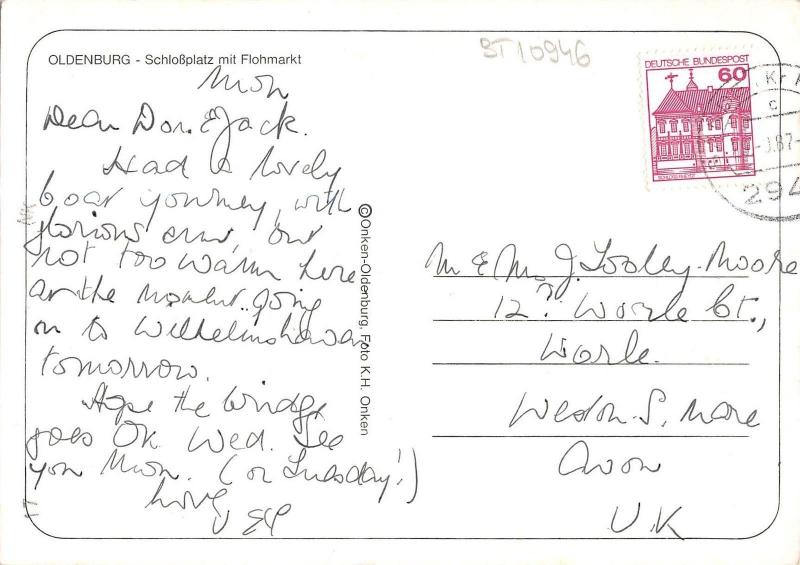 OLDENBURG - Schloßplatz mit Flohmarkt
BT10946
DEUTSCHE BUNDESPOST
60
SCHLOSS RHEYDT
c
.87-
294
Mon
Dear Don. & Jack.
Had a lovely
boat journey, with
glorious sun, but
not too warm here
at the moment. going
on to Wilhelmshaven
tomorrow.
Hope the Windge
goes OK Wed. See
you Mon. (or Tuesday!)
Love
©Onken-Oldenburg. Foto K.H. Onken
M & Mrs J. Looley-Moore
12, Worle Ct.,
Worle.
Weston-S. Mare
Avon
U.K